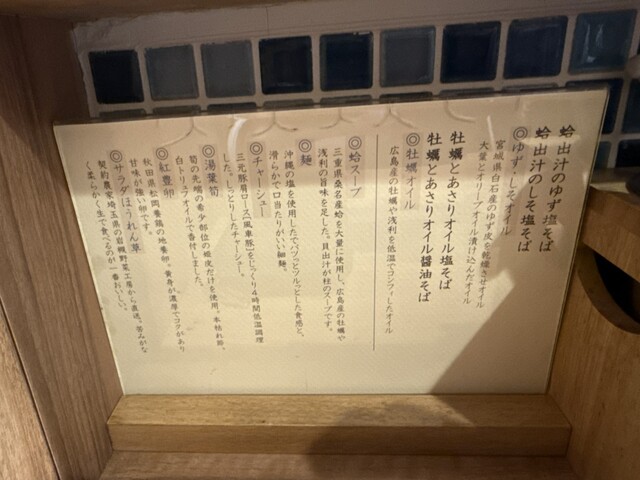 蛤出汁のゆず塩そば
蛤出汁のしそ塩そば
◎ゆず・しそオイル
宮城県白石産のゆず皮を乾燥させオイル
大葉とオリーブオイル漬け込んだオイル
牡蠣とあさりオイル塩そば
牡蠣とあさりオイル醤油そば
◎牡蠣オイル
広島産の牡蠣や浅利を低温でコンフィしたオイル
◎蛤スープ
三重県桑名産蛤を大量に使用し、広島産の牡蠣や
浅利の旨味を足した。貝出汁が柱のスープです。
◎麺
沖縄の塩を使用したでパツッとプルっとした食感と、
滑らかで口当たりがいい細麺。
◎チャーシュー
三元豚肩ロース「風車豚」をじっくり4時間低温調理
した、しっとりしたチャーシュー。
◎湯葉筍
筍の先端の希少部位の姫皮だけを使用。本枯れ節、
白トリュフオイルで香付しました。
◎紅豊卵
秋田県松岡養鶏の地養卵。黄身が濃厚でコクがあり
甘味が強い卵です。
◎サラダほうれん草
契約農家埼玉県の岩槻野菜工房から直送。苦みがな
く柔らかく生で食べるのが一番おいしい。